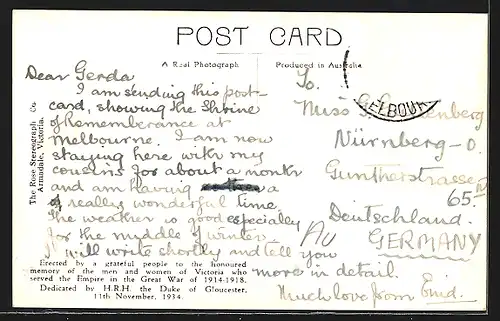 POST CARD
A Real Photograph
Produced in Australia
The Rose Stereograph Co
Armadale, Victoria.
Dear Gerda
I am sending this post-
card, showing the Shrine
of Rememberance at
Melbourne. I am now
staying here with my
cousins for about a month
and am having a
really wonderful time.
The weather is good especially
for the myddle of winter.
I will write shortly and tell you
more in detail.
Much love from Enid.
To.
Miss G.
Nürnberg-O.
Guntherstrasse
65
Deutschland.
GERMANY
ELBOUR
Erected by a grateful people to the honoured
memory of the men and women of Victoria who
served the Empire in the Great War of 1914-1918.
Dedicated by H.R.H. the Duke of Gloucester,
11th November, 1934.